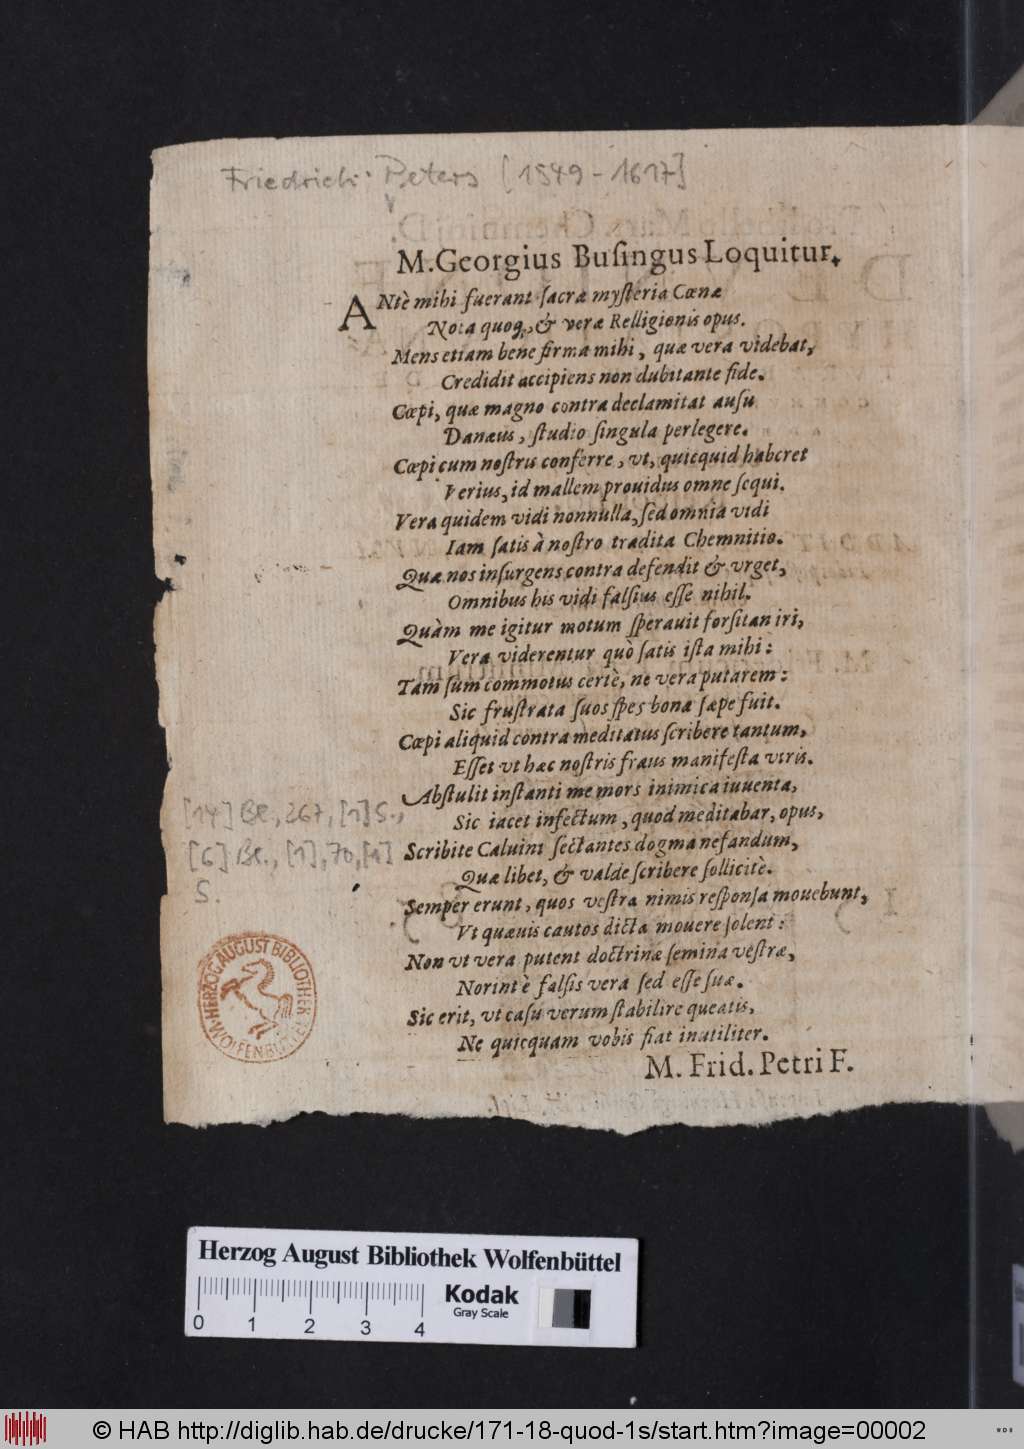 Friedrich Peters [1549-1617]
M. Georgius Buſingus Loquitur.
ANtè mihi fuerant ſacræ myſteria Cœnæ
Nota quoq;, & veræ Relligionis opus.
Mens etiam bene firma mihi, quæ vera videbat,
Credidit accipiens non dubitante fide.
Cœpi, quæ magno contra declamitat auſu
Danæus, ſtudio ſingula perlegere.
Cœpi cum noſtris conferre, vt, quicquid haberet
Verius, id mallem prouidus omne ſequi.
Vera quidem vidi nonnulla, ſed omnia vidi
Iam ſatis à noſtro tradita Chemnitio.
Quæ nos inſurgens contra defendit & vrget,
Omnibus his vidi falſius eſſe nihil.
Quàm me igitur motum ſperauit forſitan iri,
Vera viderentur quò ſatis iſta mihi:
Tam ſum commotus certè, ne vera putarem:
Sic fruſtrata ſuos ſpes bona ſæpe fuit.
Cœpi aliquid contra meditatus ſcribere tantum,
Eſſet vt hæc noſtris fraus manifeſta viris.
Abſtulit inſtanti me mors inimica iuuenta,
Sic iacet infectum, quod meditabar, opus,
Scribite Caluini ſectantes dogma nefandum,
Quæ libet, & valde ſcribere ſollicitè.
Semper erunt, quos veſtra nimis reſponſa mouebunt,
Vt quæuis cautos dicta mouere ſolent:
Non vt vera putent doctrinæ ſemina veſtræ,
Norint è falſis vera ſed eſſe ſuæ.
Sic erit, vt caſu verum ſtabilire queatis,
Ne quicquam vobis fiat inutiliter.
M. Frid. Petri F.
[14] Bl., 267, [1] S.,
[6] Bl., [1], 70, [1]
S.
HERZOG AUGUST BIBLIOTHEK
WOLFENBÜTTEL
Herzog August Bibliothek Wolfenbüttel
0 1 2 3 4
Kodak
Gray Scale
© HAB http://diglib.hab.de/drucke/171-18-quod-1s/start.htm?image=00002